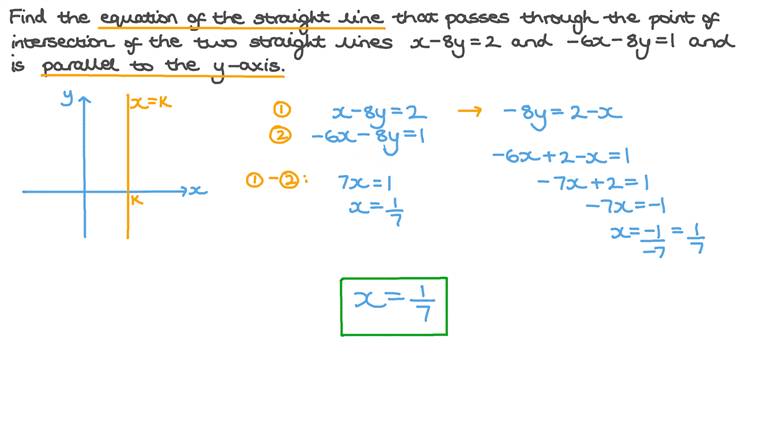 Find the equation of the straight line that passes through the point of
intersection of the two straight lines x-8y=2 and -6x-8y=1 and
is parallel to the y-axis.
y
x=K
K
x
① x-8y=2 → -8y=2-x
② -6x-8y=1
-6x+2-x=1
①-②: 7x=1
-7x+2=1
x=1/7
-7x=-1
x=-1/-7=1/7
x=1/7